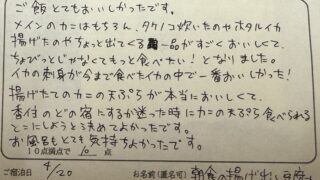 ご飯とてもおいしかったです。
メインのカニはもちろん、タケノコ炊いたのやホタルイカ
揚げたのやちょっと出てくる一品がすごくおいしくて、
ちびっとじゃなくてもっと食べたい!となりました。
イカの刺身が今まで食べたイカの中で一番おいしかった!
揚げたてのカニの天ぷらが本当においしくて、
香住のどの宿にするか迷った時にカニの天ぷら食べられる
とこにしようと決めてよかったです。
お風呂もとても気持ちよかったです。
10点満点で 10 点
ご宿泊日 4/20 お名前(匿名可) 朝食の揚げ出し豆腐